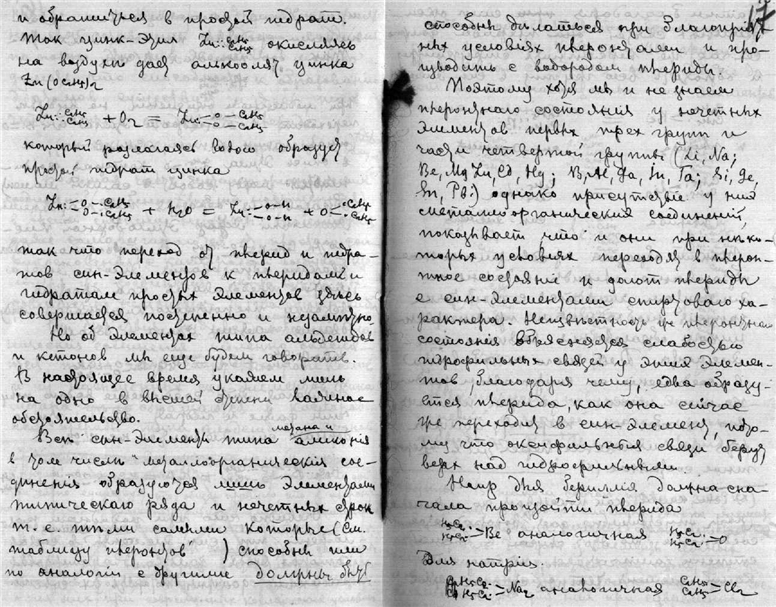 и обратился в простой гидрат.
Так цинк-этил Zn::C₂H₅ C₂H₅ окисляясь
на воздухѣ даетъ алькоолятъ цинка
Zn(OC₂H₅)₂
Zn::C₂H₅ C₂H₅ + O₂ = Zn::-O-C₂H₅ -O-C₂H₅
который разлагаясь водою образуетъ
простой гидрат цинка
Zn::-O-C₂H₅ -O-C₂H₅ + H₂O = Zn::-O-H -O-H + O<C₂H₅ C₂H₅
так что переход от пверид и гидра-
тов син-элементов к пверидам и
гидратам простых элементов здесь
совершается постепенно и незаметно.
Но об элементах типа альдегидов
и кетонов мы еще будем говорить.
В настоящее время укажем лишь
на одно в высшей степени важное
обстоятельство.
метана и
Все син-элементы типа аммония
в том числѣ и металлоорганическия сое-
динения образуются лишь элементами
типическаго ряда и нечетных строк
т.е. тѣми самыми которые (См.
таблицу пверонтов ) способны или
по аналогіи с другими должны быть
17
способны делаться при благоприят-
ных условиях пверонтами и про-
изводить с водородом пвериды.
Поэтому хотя мы и не знаем
пверонтнаго состояния у нечетных
элементов первых трех групп и
части четвертой группы (Li, Na;
Be, Mg, Zn, Cd, Hg; B, Al, Ga, In, Ta; Si, Ge,
Sn, Pb:) однако присутствие у них
металлоорганических соединений,
показывает что и они при неко-
торых условиях переходят в пверон-
тное состояние и дают пвериды
с син-элементами спиртоваго ха-
рактера. Неизвѣстность же пверонтнаго
состояния объясняется слабостью
гидрофильных связей у этих элемен-
тов, благодаря чему, едва образу-
ется пверида, как она сейчас
же переходит в син-элемент, пото-
му что оксифильныя связи берут
верх над гидрофильными.
Напр. для бериллия должна сна-
чала произойти пверида
H₅C₂ H₅C₂>Be аналогичная H₅C₂ H₅C₂>O
Для натрия.
H₅C₂ H₅C₂>Na₂ аналогичная C₂H₅ C₂H₅>Cl₂